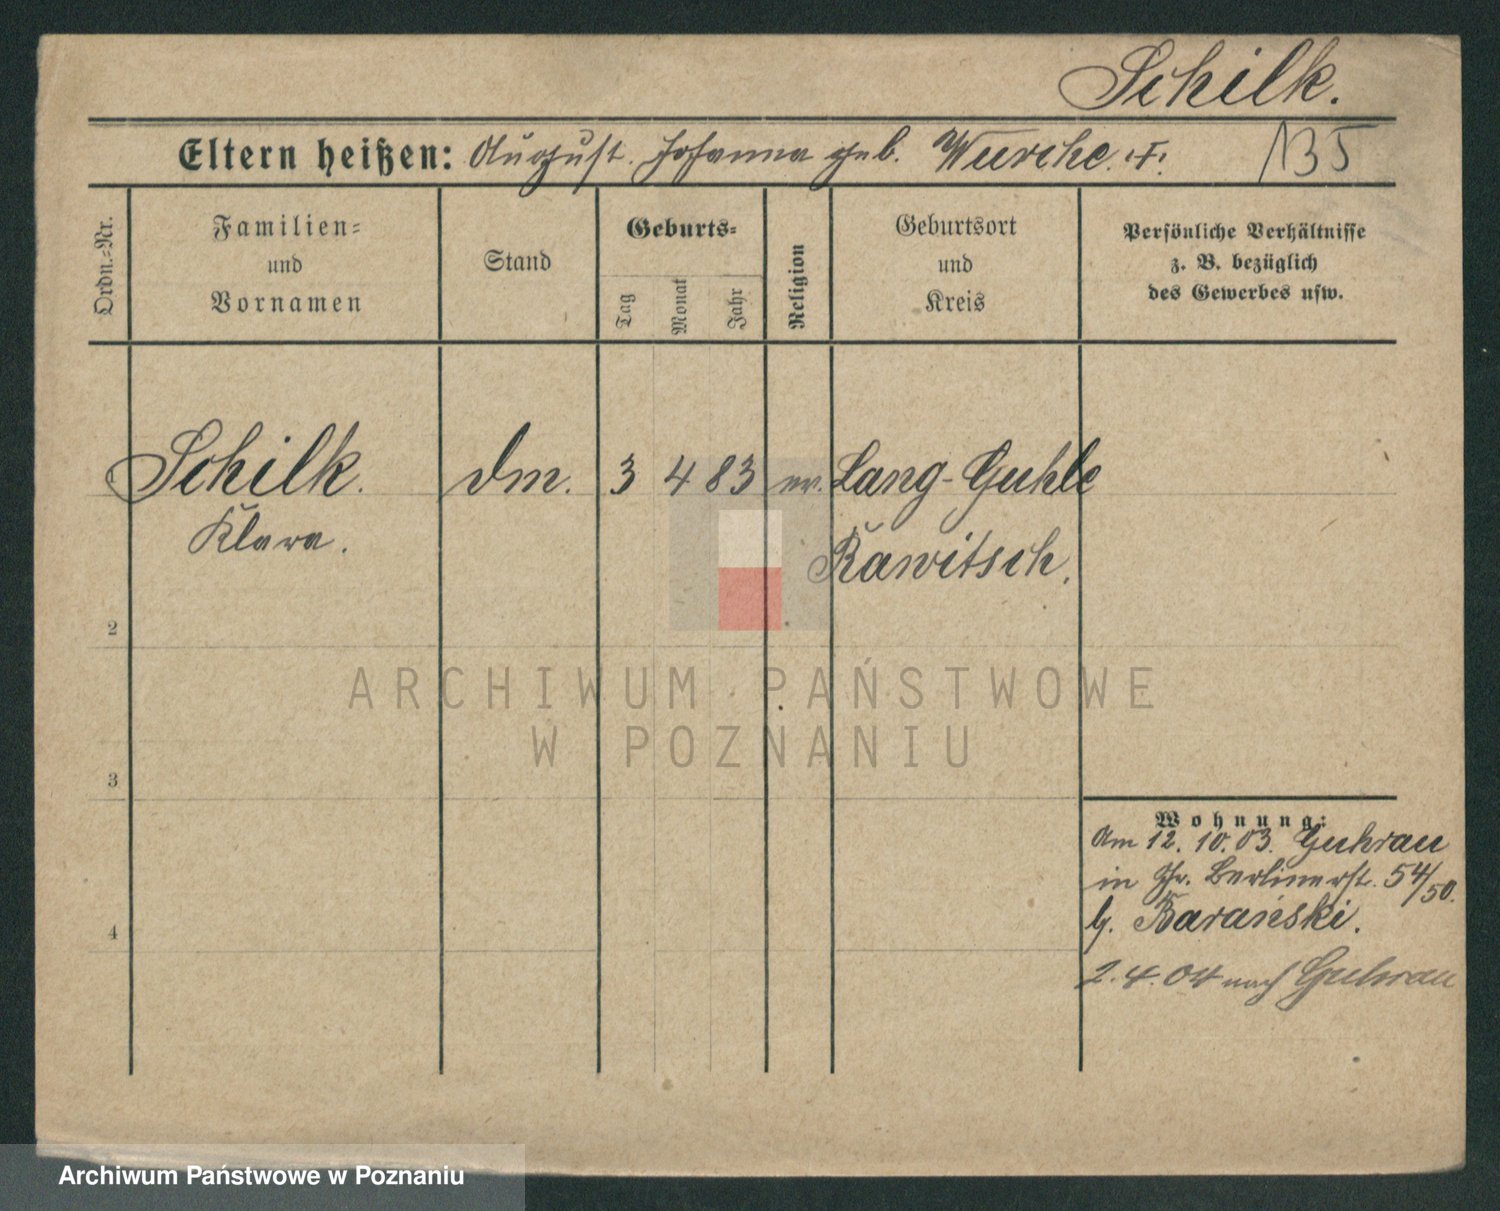 Schilk.
Eltern heißen: August. Johanna geb. Wurche. 135
Ordn.-Nr.
Familien- und Vornamen
Stand
Geburts-
Tag
Monat
Jahr
Religion
Geburtsort und Kreis
Persönliche Verhältnisse
z. B. bezüglich
des Gewerbes usw.
Schilk. Dm. 3 4 83 ev. Lang-Guhle
Klara. Rawitsch.
2
3
4
Wohnung:
Am 12. 10. 03. Guhrau
in Gr. Berlinerst. 54/50.
b. Barański.
2. 4. 04 nach Guhrau
ARCHIWUM PAŃSTWOWE
W POZNANIU
Archiwum Państwowe w Poznaniu